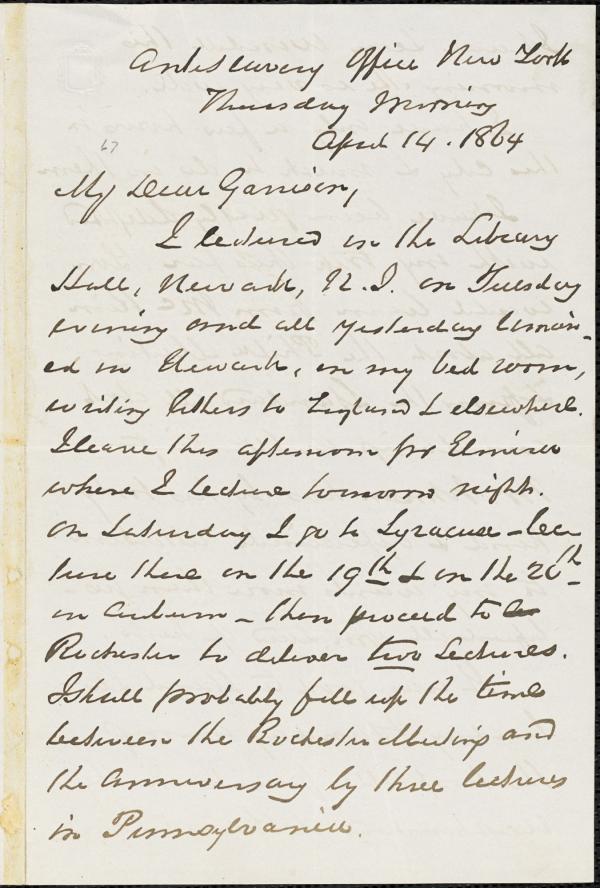 Anti Slavery Office New York
Thursday Morning
April 14. 1864
67
My Dear Garrison,
I lectured in the Library
Hall, Newark, N.J. on Tuesday
evening and all yesterday remain-
ed in Newark, in my bed room,
writing letters to England & elsewhere.
I leave this afternoon for Elmira
where I lecture tomorrow night.
On Saturday I go to Syracuse – lec
ture there on the 19th & on the 20th
in Auburn – then proceed to
Rochester to deliver two Lectures.
I shall probably fill up the time
between the Rochester Meeting and
the Anniversary by three lectures
in Pennsylvania.